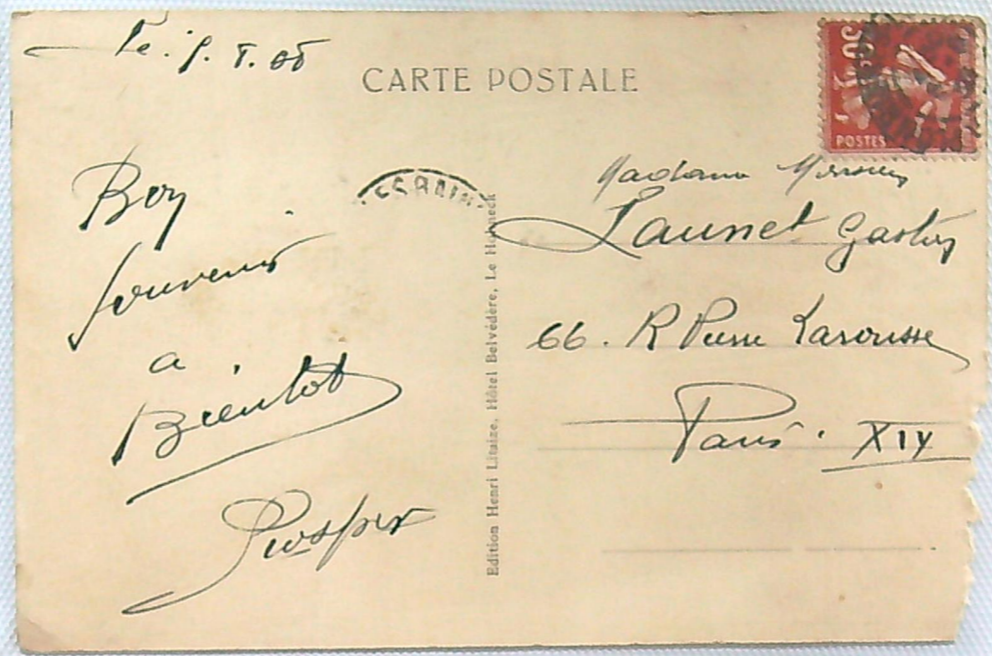 Le
CARTE POSTALE
30
POSTES
Bon
Souvenir
a
Bientot
Prosper
Edition Henri Litaize, Hôtel Belvédère, Le Hohneck
Madame Monsieur
Launet Gaston
66. R Pierre Larousse
Paris. XIV